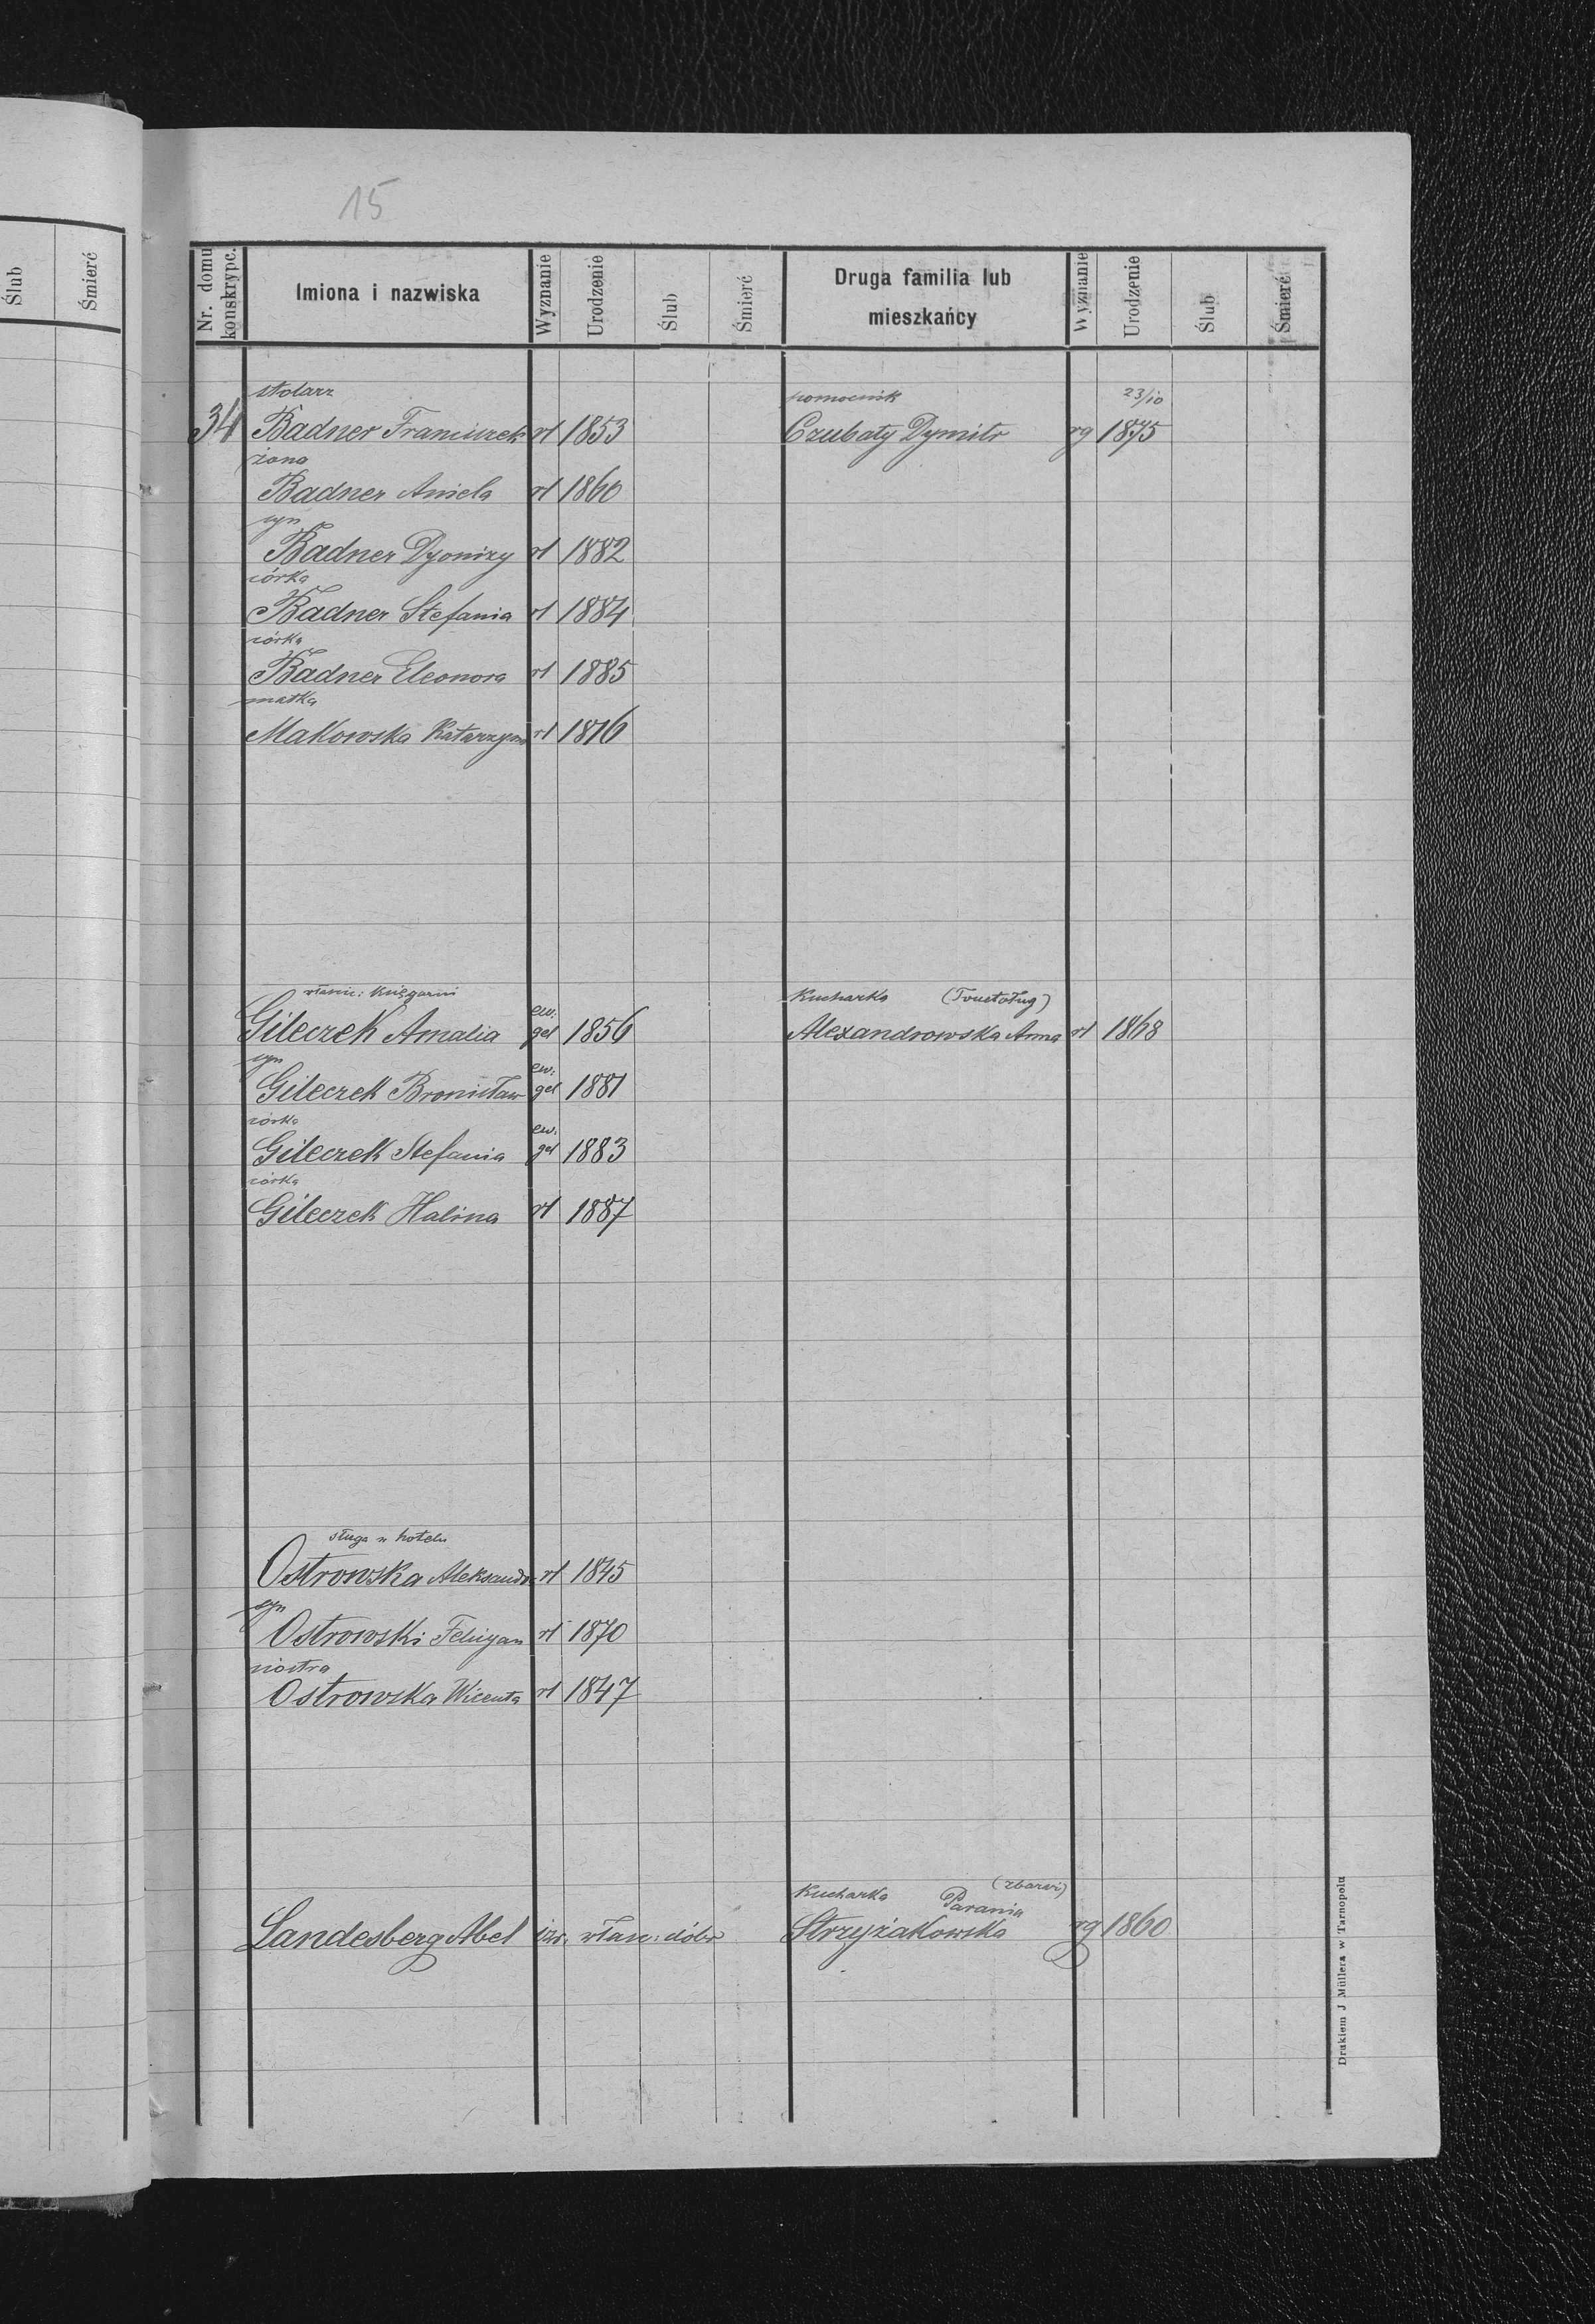 Ślub
Śmierć
15
Nr. domu konskrypc.
Imiona i nazwiska
Wyznanie
Urodzenie
Ślub
Śmierć
Druga familia lub
mieszkańcy
Wyznanie
Urodzenie
Ślub
Śmierć
stolarz
pomocnik 23/10
34 Badner Franciszek rl 1853 Czubaty Dymitr rg 1875
żona
Badner Aniela rl 1860
syn
Badner Dyonizy rl 1882
córka
Badner Stefania rl 1884
córka
Badner Eleonora rl 1885
matka
Makowska Katarzyna rl 1816
własc: księgarni ew. Kucharka (Toustoług)
Gileczek Amalia gel 1856 Alexandrowska Anna rl 1868
syn ew:
Gileczek Bronisław gel 1881
córka ew.
Gileczek Stefania gel 1883
córka
Gileczek Halina rl 1887
sługa w hotelu
Ostrowska Aleksandr rl 1845
syn
Ostrowski Felicyan rl 1870
siostra
Ostrowska Wicenta rl 1847
Kucharka Parania (zbarai)
Landesberg Abel izr. włas: dóbr Strzyżakowska rg 1860
Drakiem J Müllera w Tarnopolu